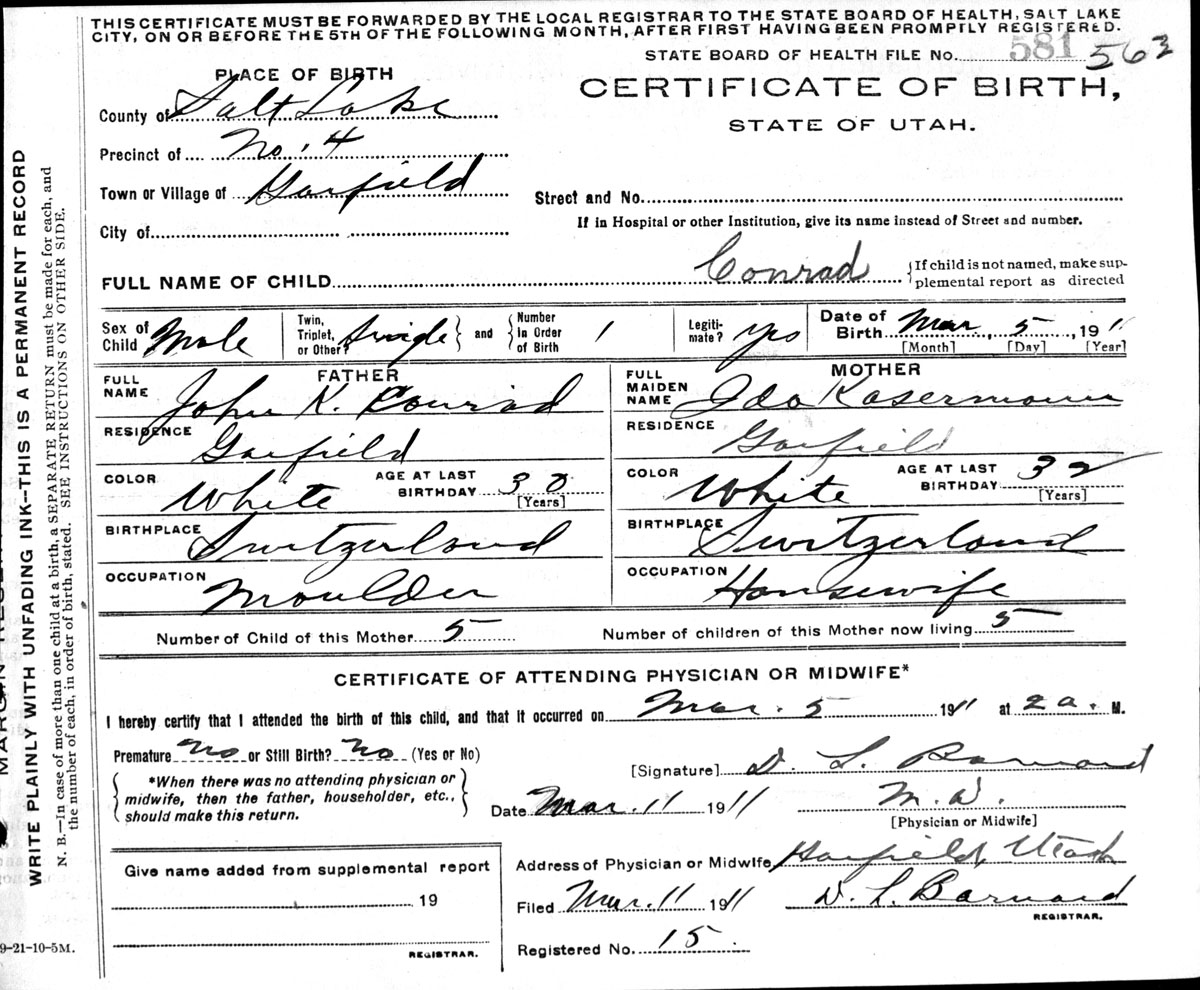 THIS CERTIFICATE MUST BE FORWARDED BY THE LOCAL REGISTRAR TO THE STATE BOARD OF HEALTH, SALT LAKE
CITY, ON OR BEFORE THE 5TH OF THE FOLLOWING MONTH, AFTER FIRST HAVING BEEN PROMPTLY REGISTERED.
STATE BOARD OF HEALTH FILE No. 581 563
PLACE OF BIRTH
CERTIFICATE OF BIRTH,
STATE OF UTAH.
County of Salt Lake
Precinct of No. 4
Town or Village of Garfield
Street and No.
If in Hospital or other Institution, give its name instead of Street and number.
City of
FULL NAME OF CHILD Conrad {If child is not named, make sup-
plemental report as directed
Sex of Child Male Twin, Triplet, or Other? Single } and { Number in Order of Birth 1 Legiti-mate? Yes Date of Birth Mar, 5, 1911
[Month] [Day] [Year]
FATHER
FULL NAME John K. Conrad
RESIDENCE Garfield
COLOR White AGE AT LAST BIRTHDAY 30 [Years]
BIRTHPLACE Switzerland
OCCUPATION Moulder
MOTHER
FULL MAIDEN NAME Ida Kasermann
RESIDENCE Garfield
COLOR White AGE AT LAST BIRTHDAY 32 [Years]
BIRTHPLACE Switzerland
OCCUPATION Housewife
Number of Child of this Mother 5 Number of children of this Mother now living 5
CERTIFICATE OF ATTENDING PHYSICIAN OR MIDWIFE*
I hereby certify that I attended the birth of this child, and that it occurred on Mar. 5 1911 at 2 a. M.
Premature No or Still Birth? No (Yes or No)
{ *When there was no attending physician or
midwife, then the father, householder, etc.,
should make this return. }
[Signature] D. L. Barnard
Date Mar. 11 1911 M.D.
[Physician or Midwife]
Address of Physician or Midwife Garfield, Utah
Filed Mar. 11 1911 D. L. Barnard
REGISTRAR.
Registered No. 15
Give name added from supplemental report
19
REGISTRAR.
WRITE PLAINLY WITH UNFADING INK--THIS IS A PERMANENT RECORD
N. B.—In case of more than one child at a birth, a SEPARATE RETURN must be made for each, and
the number of each, in order of birth, stated. SEE INSTRUCTIONS ON OTHER SIDE.
9-21-10-5M.